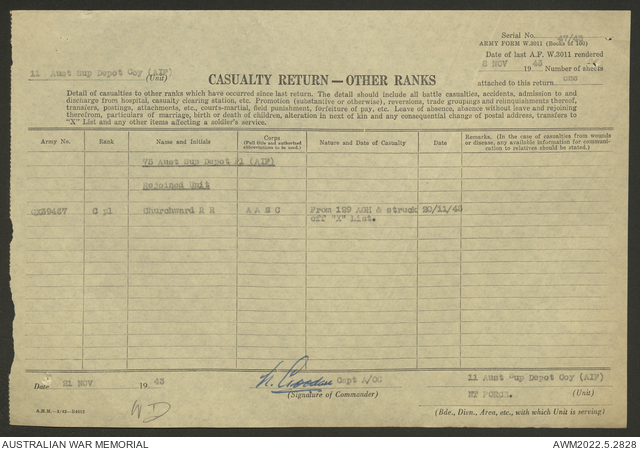 Serial No. 47/43
ARMY FORM W.3011 (Books of 100)
Date of last A.F. W.3011 rendered
6 NOV 1943 Number of sheets
attached to this return one
11 Aust Sup Depot Coy (AIF) (Unit)
CASUALTY RETURN—OTHER RANKS
Detail of casualties to other ranks which have occurred since last return. The detail should include all battle casualties, accidents, admission to and
discharge from hospital, casualty clearing station, etc. Promotion (substantive or otherwise), reversions, trade groupings and relinquishments thereof,
transfers, postings, attachments, etc., courts-martial, field punishment, forfeiture of pay, etc. Leave of absence, absence without leave and rejoining
therefrom, particulars of marriage, birth or death of children, alteration in next of kin and any consequential change of postal address, transfers to
"X" List and any other items affecting a soldier's service.
Army No. Rank Name and Initials Corps (Full title and authorized abbreviations to be used.) Nature and Date of Casualty Date Remarks. (In the case of casualties from wounds or disease, any available information for communication to relatives should be stated.)
75 Aust Sup Depot Pl (AIF)
Rejoined Unit
Cpl Churchward R R A A S C From 129 AGH & struck 20/11/43
off "X" List.
Date 21 NOV 1943 Capt A/OC 11 Aust Sup Depot Coy (AIF)
(Signature of Commander) NT FORCE. (Unit)
WD
(Bde., Divn., Area, etc., with which Unit is serving)
AUSTRALIAN WAR MEMORIAL AWM2022.5.2828